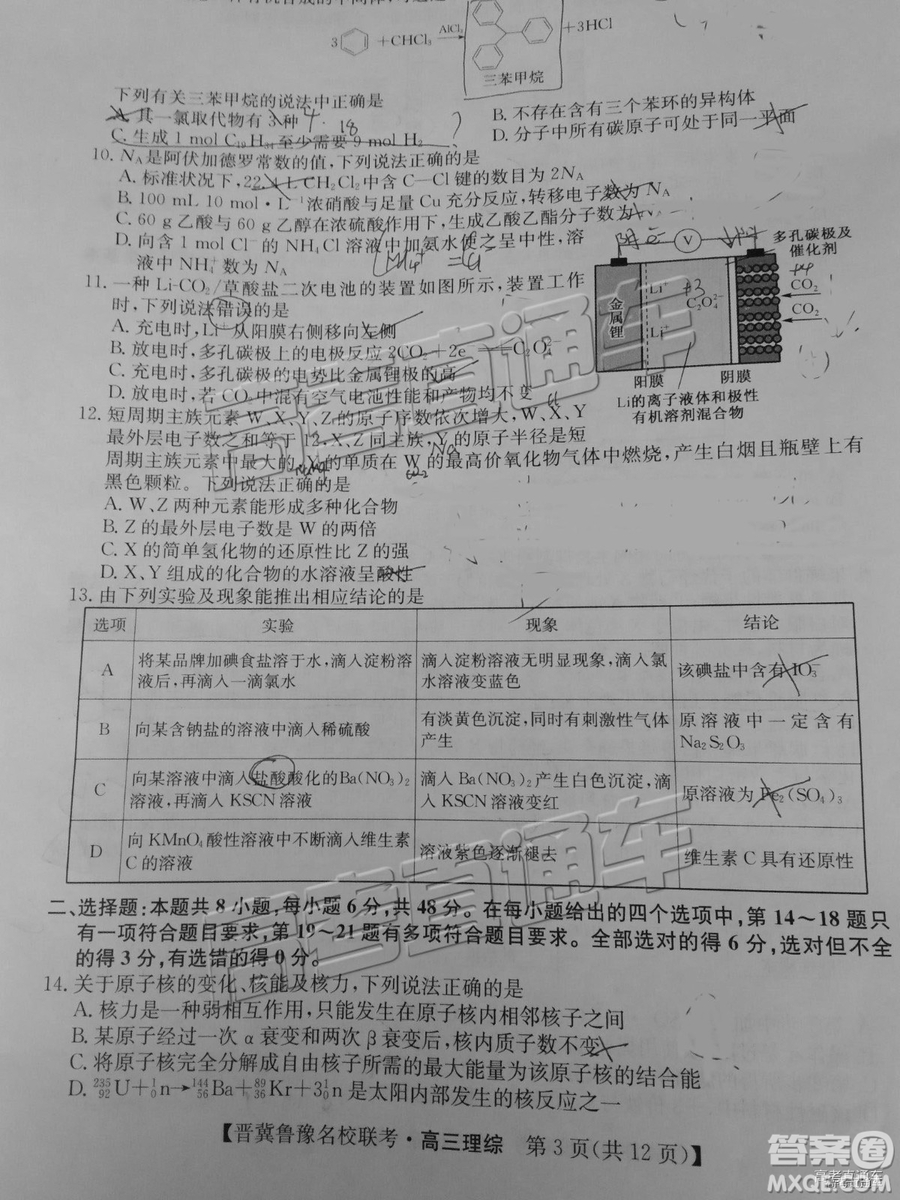 3 +CHCl₃ AlCl₃ +3HCl
三苯甲烷
下列有关三苯甲烷的说法中正确是
A. 其一氯取代物有3种 4
B. 不存在含有三个苯环的异构体
C. 生成 1 mol C₁₉H₃₄至少需要 9 mol H₂ 18 ?
D. 分子中所有碳原子可处于同一平面
10. Nᴀ是阿伏加德罗常数的值,下列说法正确的是
A. 标准状况下,22.4 L CH₂Cl₂中含 C—Cl 键的数目为 2Nᴀ
B. 100 mL 10 mol·L⁻¹浓硝酸与足量 Cu 充分反应,转移电子数为 Nᴀ
C. 60 g 乙酸与 60 g 乙醇在浓硫酸作用下,生成乙酸乙酯分子数为
D. 向含 1 mol Cl⁻的 NH₄Cl 溶液中加氨水使之呈中性,溶
液中 NH₄⁺数为 Nᴀ
11. 一种 Li-CO₂/草酸盐二次电池的装置如图所示,装置工作
时,下列说法错误的是
A. 充电时,Li⁺从阳膜右侧移向左侧
B. 放电时,多孔碳极上的电极反应 2CO₂+2e⁻══C₂O₄²⁻
C. 充电时,多孔碳极的电势比金属锂极的高
D. 放电时,若 CO₂中混有空气电池性能和产物均不变
V
多孔碳极及
催化剂
金属锂
Li⁺
C₂O₄²⁻
CO₂
Li⁺
CO₂
阳膜 阴膜
Li的离子液体和极性
有机溶剂混合物
12. 短周期主族元素 W、X、Y、Z的原子序数依次增大,W、X、Y
最外层电子数之和等于 12,X、Z 同主族,Y 的原子半径是短
周期主族元素中最大的,Y的单质在 W 的最高价氧化物气体中燃烧,产生白烟且瓶壁上有
黑色颗粒。下列说法正确的是
A. W、Z 两种元素能形成多种化合物
B. Z 的最外层电子数是 W 的两倍
C. X 的简单氢化物的还原性比 Z 的强
D. X、Y 组成的化合物的水溶液呈酸性
13. 由下列实验及现象能推出相应结论的是
选项 实验 现象 结论
A 将某品牌加碘食盐溶于水,滴入淀粉溶液后,再滴入一滴氯水 滴入淀粉溶液无明显现象,滴入氯水溶液变蓝色 该碘盐中含有 IO₃⁻
B 向某含钠盐的溶液中滴入稀硫酸 有淡黄色沉淀,同时有刺激性气体产生 原溶液中一定含有 Na₂S₂O₃
C 向某溶液中滴入盐酸酸化的Ba(NO₃)₂溶液,再滴入 KSCN 溶液 滴入 Ba(NO₃)₂产生白色沉淀,滴入 KSCN 溶液变红 原溶液为 Fe₂(SO₄)₃
D 向 KMnO₄酸性溶液中不断滴入维生素 C 的溶液 溶液紫色逐渐褪去 维生素 C 具有还原性
二、选择题:本题共 8 小题,每小题 6 分,共 48 分。在每小题给出的四个选项中,第 14~18 题只
有一项符合题目要求,第 19~21 题有多项符合题目要求。全部选对的得 6 分,选对但不全
的得 3 分,有选错的得 0 分。
14. 关于原子核的变化、核能及核力,下列说法正确的是
A. 核力是一种弱相互作用,只能发生在原子核内相邻核子之间
B. 某原子经过一次 α 衰变和两次 β 衰变后,核内质子数不变
C. 将原子核完全分解成自由核子所需的最大能量为该原子核的结合能
D. ²³⁵₉₂U+¹₀n→¹⁴⁴₅₆Ba+⁸⁹₃₆Kr+3¹₀n 是太阳内部发生的核反应之一
【晋冀鲁豫名校联考·高三理综 第 3 页(共 12 页)】
高考直通车
高考直通车
答案圈
MXQE.COM